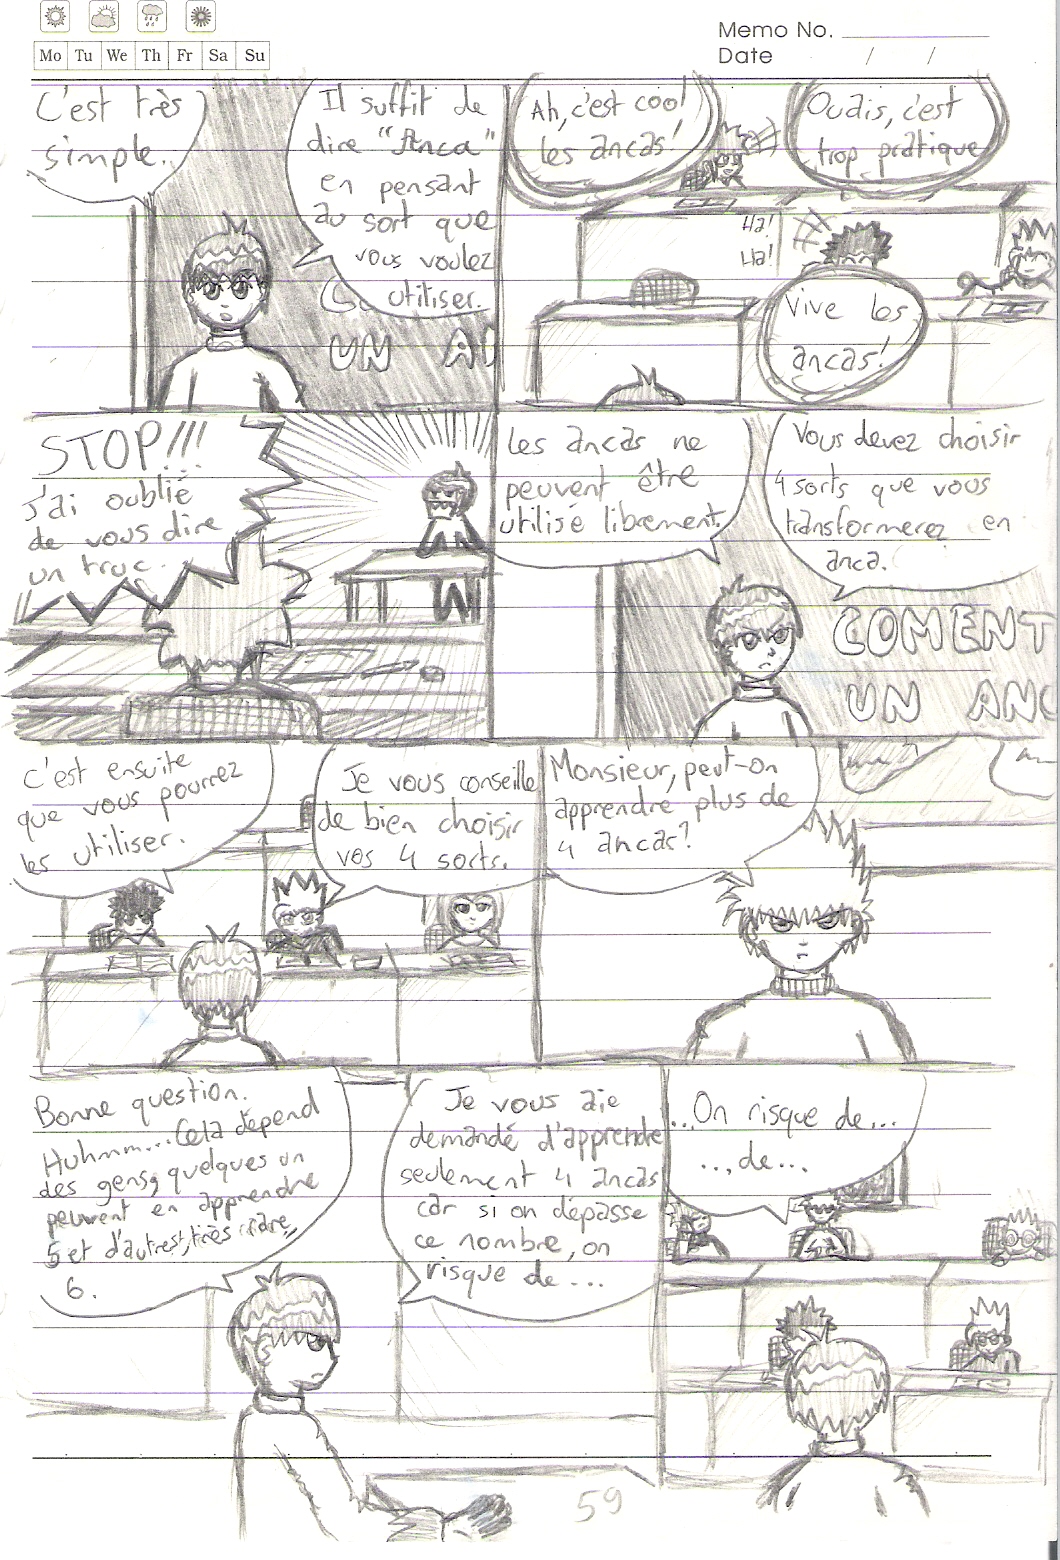 Mo Tu We Th Fr Sa Su
Memo No.
Date / /
C'est très
simple.
Il suffit de
dire "Anca"
en pensant
au sort que
vous voulez
utiliser.
UN
Ah, c'est cool
les ancas!
Ouais, c'est
trop pratique
Ha!
Ha!
Vive les
ancas!
STOP!!!
J'ai oublié
de vous dire
un truc.
Les ancas ne
peuvent être
utilisé librement.
Vous devez choisir
4 sorts que vous
transformerez en
anca.
COMENT
UN ANC
C'est ensuite
que vous pourrez
les utiliser.
Je vous conseille
de bien choisir
vos 4 sorts.
Monsieur, peut-on
apprendre plus de
4 ancas?
Bonne question.
Huhmm... Cela dépend
des gens, quelques un
peuvent en apprendre
5 et d'autres, très rare,
6.
Je vous aie
demandé d'apprendre
seulement 4 ancas
car si on dépasse
ce nombre, on
risque de...
...On risque de...
...de...
59